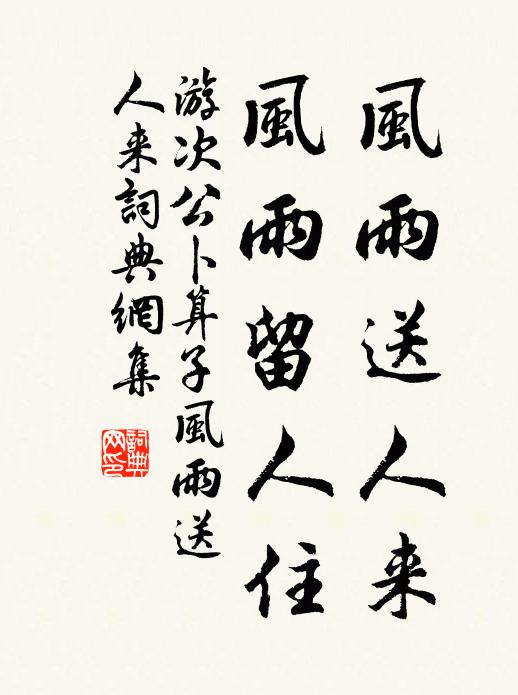 風雨送人来
風雨留人住
游次公卜算子風雨送
人来詞典網集
詞典
网印